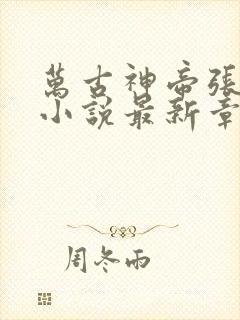 萬古神帝張
小說最新章
周冬雨